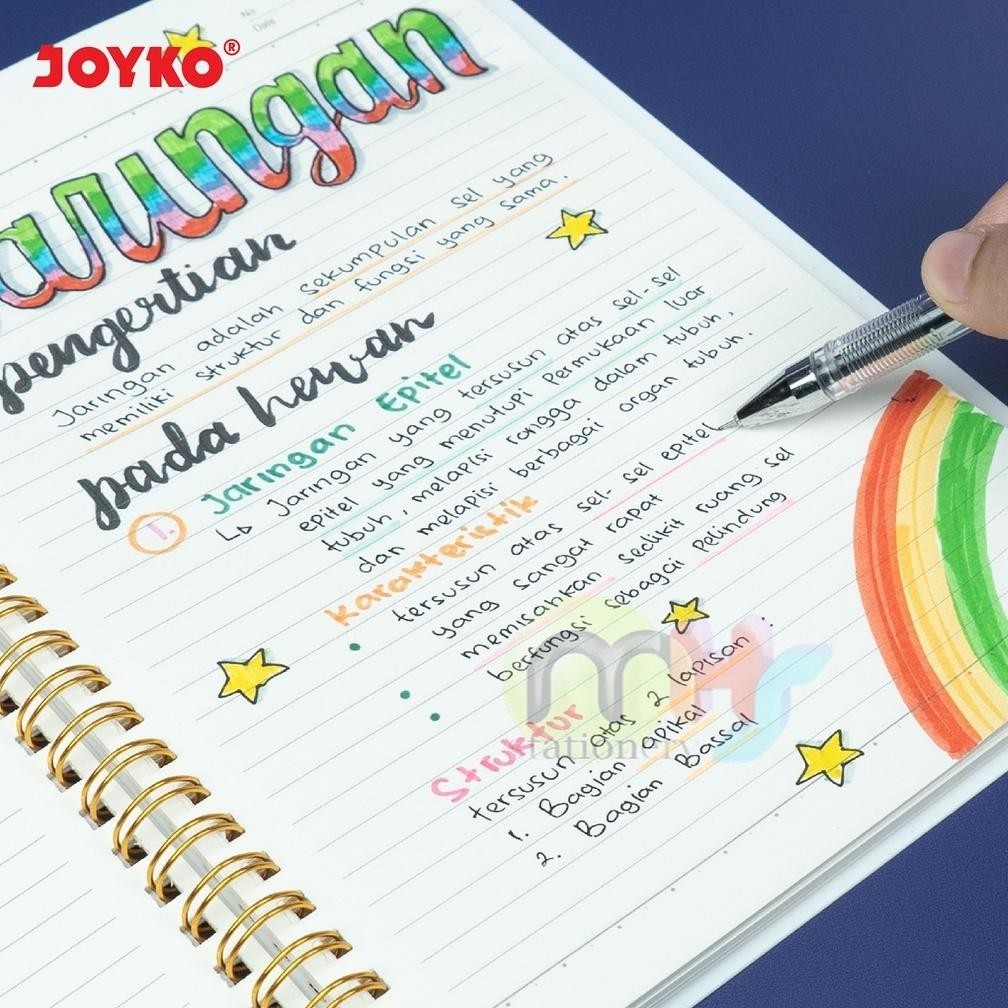 No
Date
JOYKO®
arungan
pengertian
Jaringan adalah sekumpulan sel yang
memiliki struktur dan fungsi yang sama.
pada hewan
1. Jaringan Epitel
Jaringan yang tersusun atas sel-sel
epitel yang menutupi permukaan luar
tubuh, melapisi rongga dalam tubuh,
dan melapisi berbagai organ tubuh.
karakteristik
tersusun atas sel-sel epitel
yang sangat rapat
memisahkan sedikit ruang sel
berfungsi sebagai pelindung
Struktur
tersusun atas 2 lapisan :
1. Bagian apikal
2. Bagian Bassal
mHs
tationery